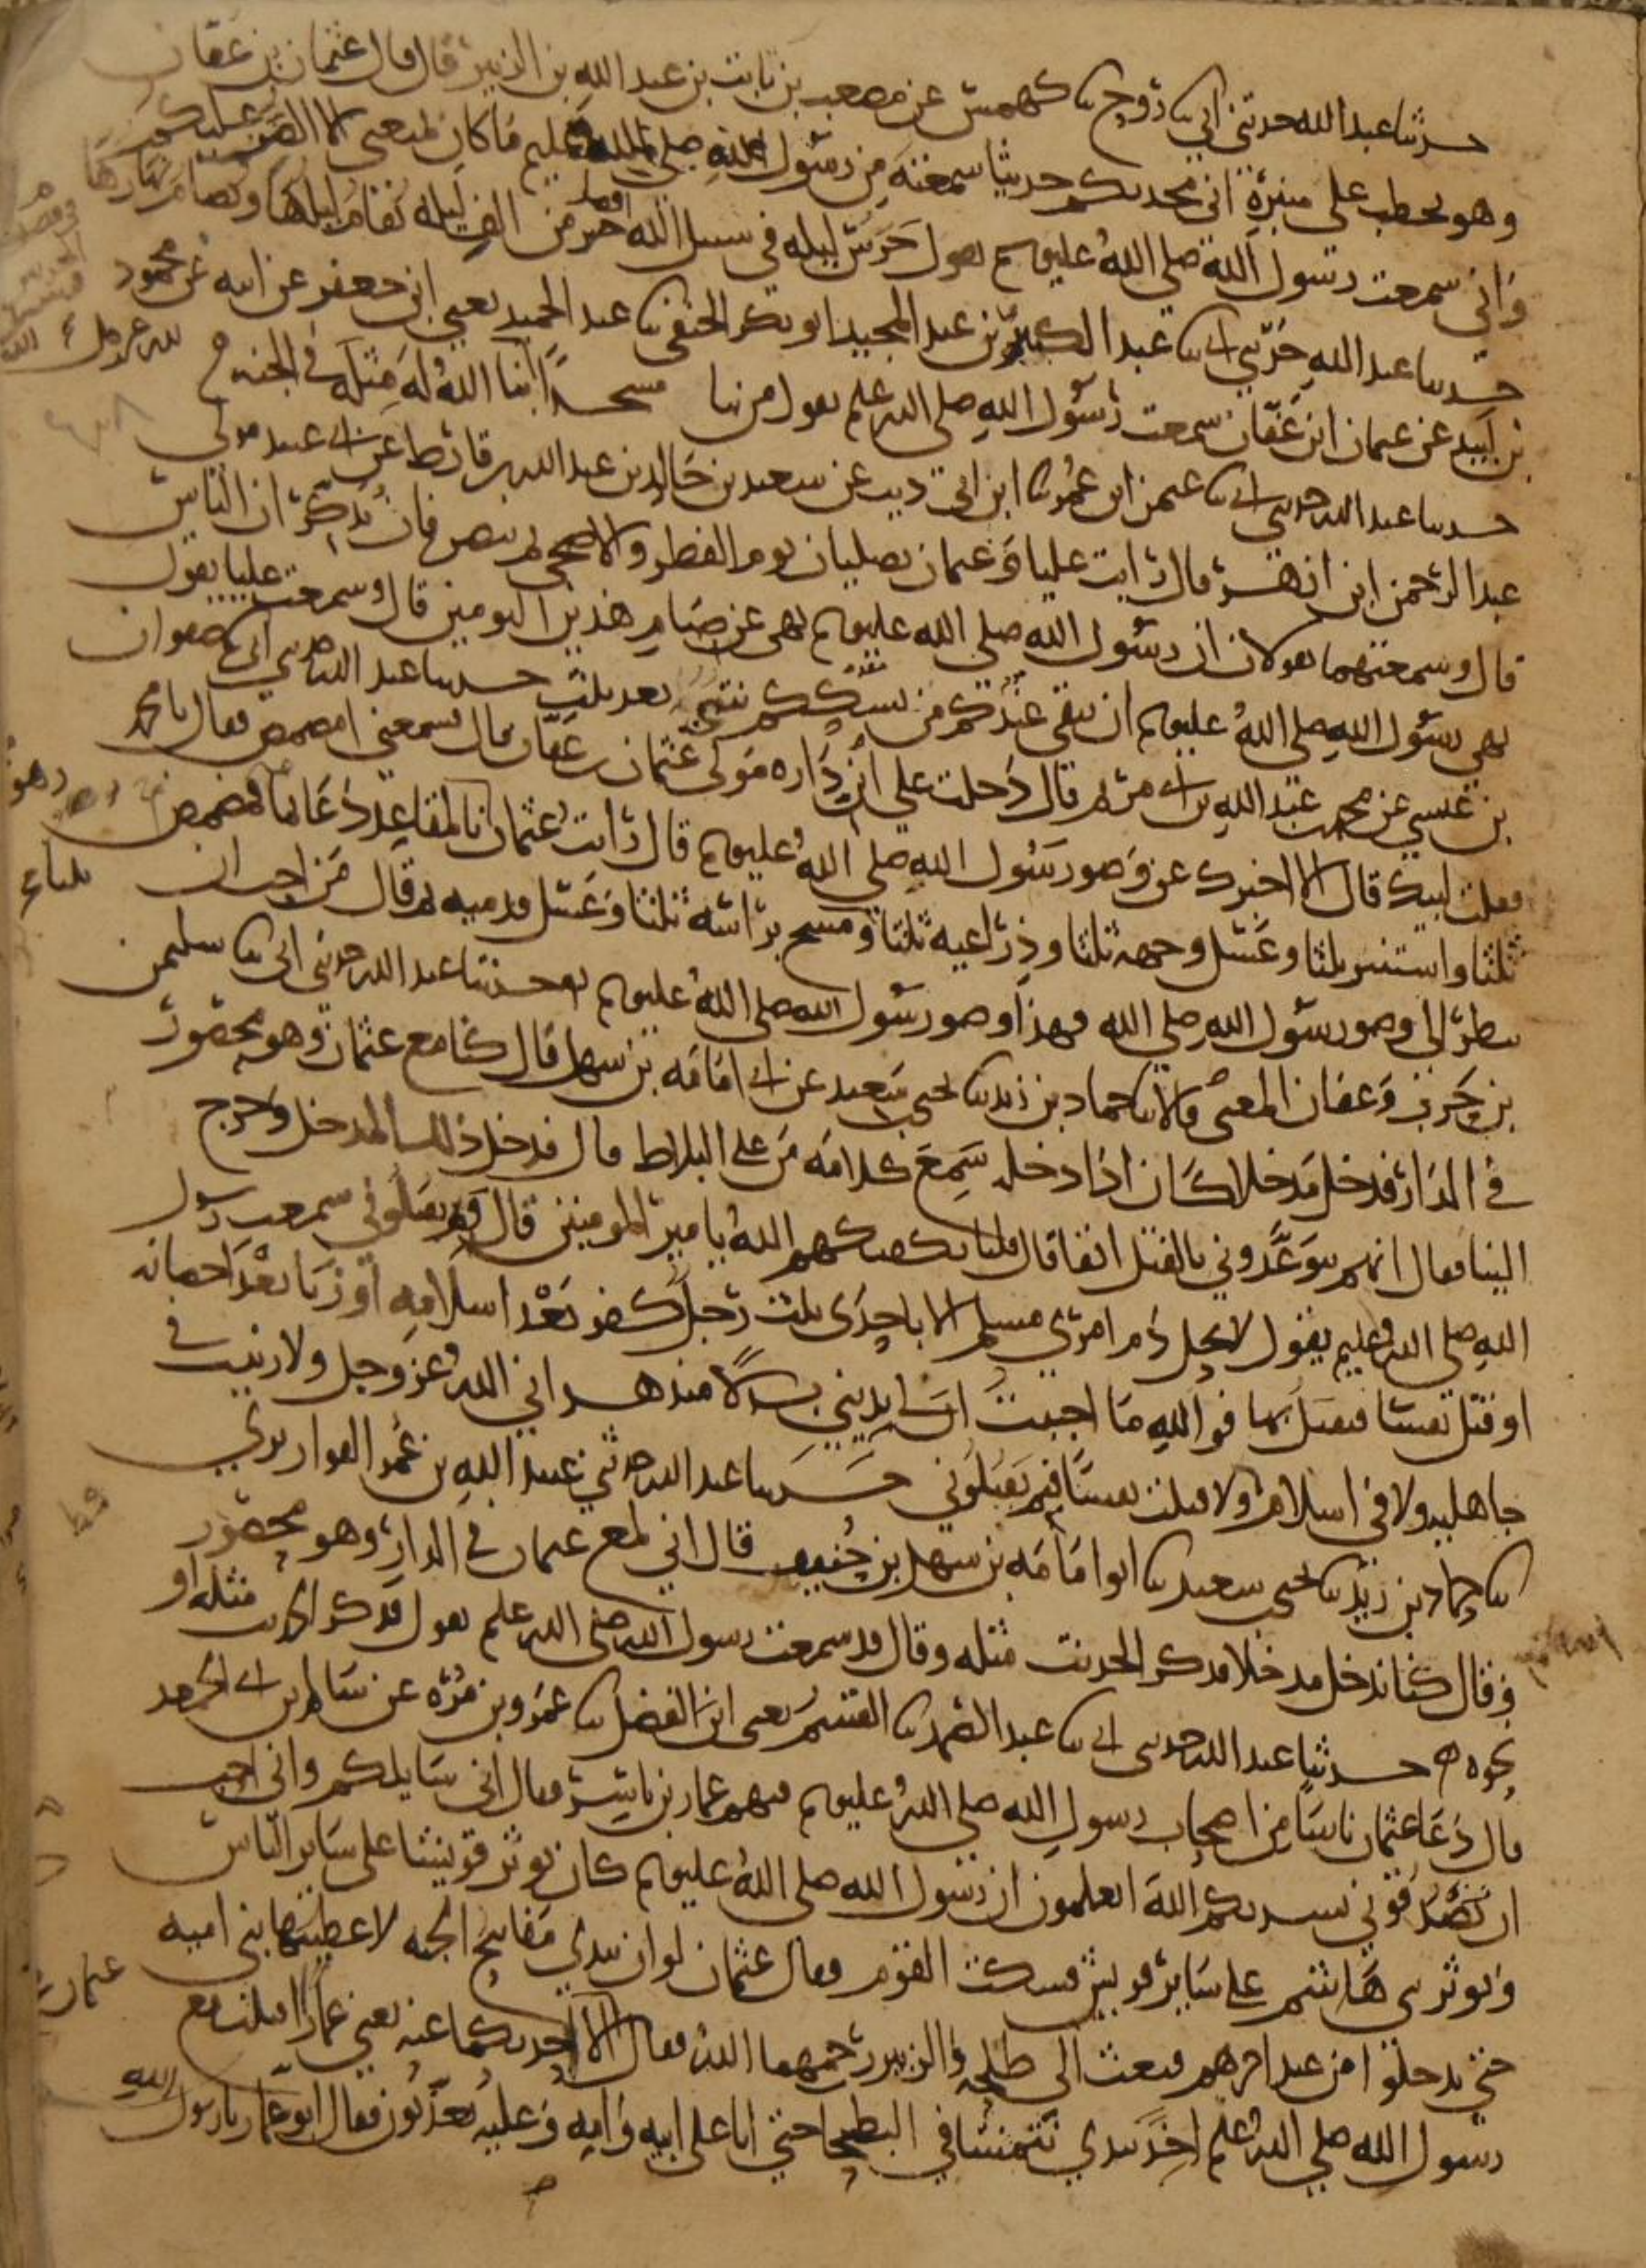 حدثنا عبد الله حدثني ابي نا روح نا كهمس عن مصعب بن ثابت بن عبد الله بن الزبير قال قال عثمان بن عفان
وهو يخطب على منبره اني محدثكم حديثا سمعته من رسول الله صلى الله عليه وسلم ما كان يمنعني الا الضن عليكم
واني سمعت رسول الله صلى الله عليه وسلم يقول حرس ليله في سبيل الله افضل من الف ليله يقام ليلها ويصام نهارها
حدثنا عبد الله حدثني ابي نا عبد الكبير بن عبد المجيد ابو بكر الحنفي نا عبد الحميد يعني ابن جعفر عن ابيه عن محمود
بن لبيد عن عثمان ابن عفان سمعت رسول الله صلى الله عليه وسلم يقول من بنا مسجدا لله عز وجل ابنا الله له مثله في الجنه
حدثنا عبد الله حدثني ابي نا عثمن ابن عمر نا ابن ابي ذيب عن سعيد بن خالد بن عبد الله بن قارظ عن ابي عبيد مولى
عبد الرحمن ابن ازهر قال رايت عليا وعثمان يصليان يوم الفطر والاضحى ثم ينصرفان يذكران الناس
قال وسمعتهما يقولان ان رسول الله صلى الله عليه وسلم نهى عن صيام هذين اليومين قال وسمعت عليا يقول
نهى رسول الله صلى الله عليه وسلم ان يبقى عندكم من نسككم شي بعد ثلث حدثنا عبد الله حدثني ابي نا صفوان
بن عيسى عن محمد عبد الله بن ابي مريم قال دخلت على ابن داره مولى عثمان بن عفان قال فسمعني امضمض فقال يا محمد
فقلت لبيك قال الا اخبرك عن وضو رسول الله صلى الله عليه وسلم قال رايت عثمان وهو بالمقاعد دعا بما فمضمض
ثلثا واستنثر ثلثا وغسل وجهه ثلثا وذراعيه ثلثا ثلثا ومسح براسه ثلثا وغسل قدميه ثم قال من احب ان
ينظر الى وضو رسول الله صلى الله فهذا وضو رسول الله صلى الله عليه وسلم حدثنا عبد الله حدثني ابي نا سليمن
بن حرب وعفان المعنى قالا نا حماد بن زيد نا يحيى بن سعيد عن ابي امامه بن سهل قال كنا مع عثمان وهو محصور
في الدار فدخل مدخلا كان اذا دخله سمع كلامه من على البلاط قال فدخل ذلك المدخل وخرج
الينا فقال انهم يتوعدوني بالقتل انفا قال قلنا يكفيكهم الله يا مير المومنين قال وبم يقتلوني سمعت رسول
الله صلى الله عليه وسلم يقول لا يحل دم امرئ مسلم الا باحدى ثلث رجل كفر بعد اسلامه او زنا بعد احصانه
او قتل نفسا فيقتل بها فوالله ما احببت ان لي بديني بدلا منذ هداني الله عز وجل ولا زنيت في
جاهليه ولا في اسلام ولا قتلت نفسا فبم يقتلوني حدثنا عبد الله حدثني عبيد الله بن عمر القواريري
نا حماد بن زيد نا يحيى بن سعيد نا ابو امامه بن سهل بن حنيف قال اني لمع عثمان في الدار وهو محصور
وقال كنا ندخل مدخلا فذكر الحديث مثله وقال قد سمعت رسول الله صلى الله عليه وسلم يقول فذكر الحديث مثله او
نحوه حدثنا عبد الله حدثني ابي نا عبد الصمد نا القسم يعني ابن الفضل نا عمرو بن مره عن سالم بن ابي الجعد
قال دعا عثمان ناسا من اصحاب رسول الله صلى الله عليه وسلم فيهم عمار بن ياسر فقال اني سايلكم واني احب
ان تصدقوني نشدتكم الله اتعلمون ان رسول الله صلى الله عليه وسلم كان يوثر قريشا على ساير الناس
ويوثر بني هاشم على ساير قريش فسكت القوم فقال عثمان لو ان بيدي مفاتيح الجنه لاعطيتها بني اميه
حتى يدخلوا من عند اخرهم فبعث الى طلحه والزبير رحمهما الله فقال عثمان الا احدثكما عنه يعني عمارا اقبلت مع
رسول الله صلى الله عليه وسلم اخذ بيدي نتمشا في البطحا حتى اتا على ابيه وامه وعليه يعذبون فقال ابو عمار يا رسول الله